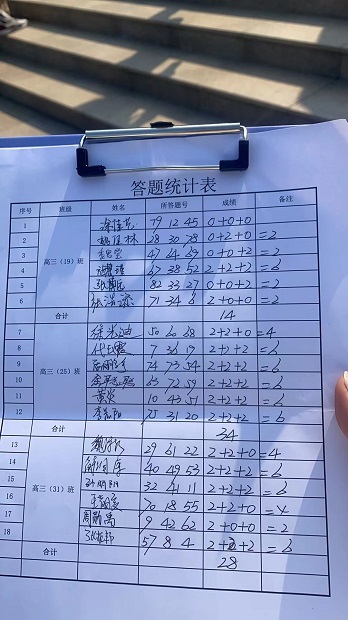 答题统计表
序号 班级 姓名 所答题号 成绩 备注
1 79 12 45 0+0+0
2 林 28 30 78 0+2+0 =2
3 47 64 69 0+0+2 =2
高三（19）班
4 67 38 52 2+2+2 =6
5 82 33 27 0+0+2 =2
6 张 71 34 6 2+0+0 =2
合计 14
7 徐 迪 50 60 68 2+2+0 =4
8 代 7 36 19 2+2+2 =6
9 74 73 54 2+2+2 =6
高三（25）班
10 63 72 59 2+2+2 =6
11 黄 10 43 51 2+2+2 =6
12 李 阳 75 31 20 2+2+2 =6
合计 34
13 魏 29 61 22 2+2+0 =4
14 40 49 53 2+2+2 =6
15 32 41 11 2+2+2 =6
高三（31）班
16 70 18 55 2+2+0 =4
17 周 禹 9 42 62 2+0+0 =2
18 57 8 4 2+2+2 =6
合计 28